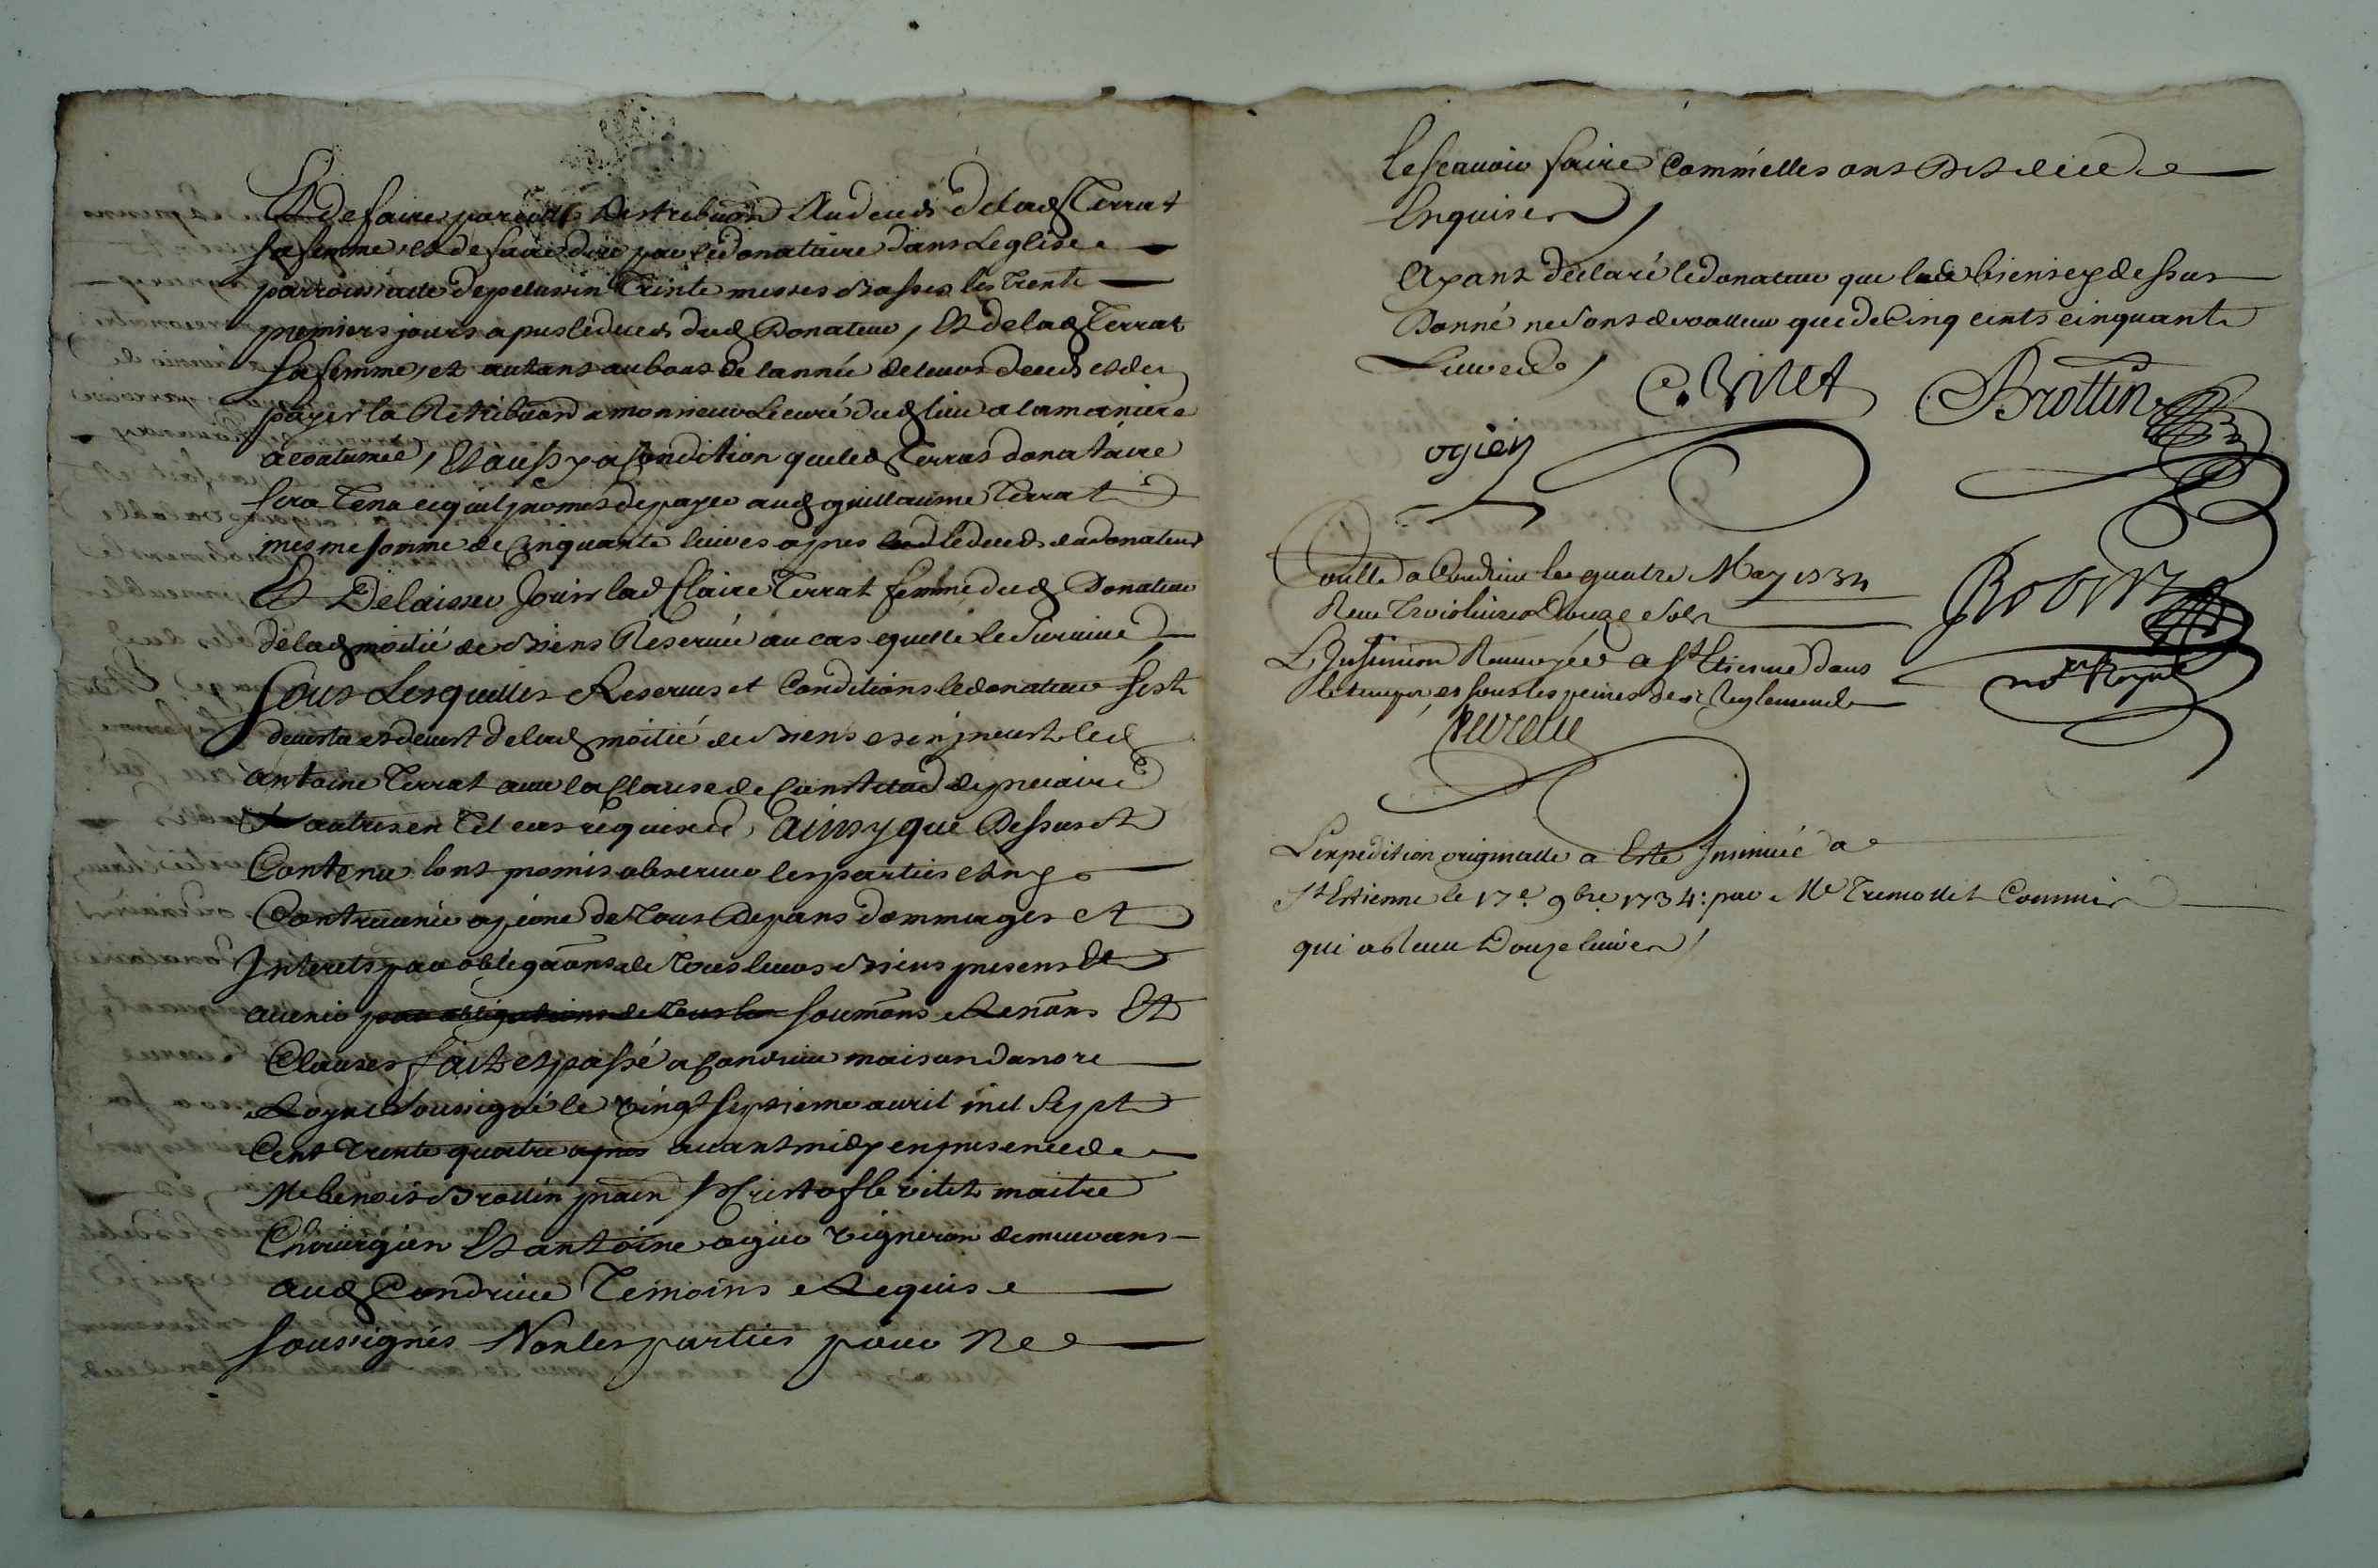 Et de faire pareille distribuon au deceds de lad Terrat
sa femme, et de faire dire par le donataire dans Leglise
parroissialle de pelussin Trente messes basses les trente
premiers jours apres le deceds dud Donateur, Et de lad Terrat
sa femme, et autant au bout de lannée de leurs deceds et de
payer la Rétribuon a monsieur Le curé dud lieu a la maniere
acoutumée, Et aussy a Condition que led Terrat donataire
sera Tenu ce quil promet de payer aud guillaume Terrat
mesme somme de Cinquante livres apres le deceds du donateur
Et De laisser Jouir lad Claire Terrat femme dud Donateur
de lad moitié de Biens Reservée au cas quelle le survive
Sous Lesquelles Reserves et Conditions le donateur sest
devestu et devest de lad moitié de Biens et en jnvest led
antoine Terrat avec la Clause de Constitut de precaire
Et autres en Tel cas requises, Ainsy que Dessus et
Contenu lont promis observer les parties et ny
Contrevenir a peine de Tous Depans dommages et
Interets par obligaons de Tous leurs Biens presens Et
avenir par obligations de Tous les soumons Renons Et
Clauses fait et passé a Condrieu maison du nore
Royal soussigné le vingt septieme avril mil sept
Cent Trente quatre apres avant midy en presence de
Me benoist Brottin prain Sr Cristofle vitet maitre
Chirurgien Et antoine ogier vigneron demeurans
aud Condrieu Temoins Requis
soussignés Non les parties pour Ne
le scavoir faire Comme elles ont Dit de ce
Enquises
Ayant déclaré le donateur que les biens cy dessus
Donné ne sont de valleur que de Cinq cents cinquante
Livres
C. Vitet Brottin
ogier
Collé a Condrieu le quatre May 1734
Receu Trois livres Douze sols
Robin
L'Insinuon Renvoyée a St Etienne dans
le temps et sous les peines des Reglements
nore Royal
L'expedition originalle a Esté Insinuée a
St Estienne le 17e 9bre 1734: par Me Tremollet Commis
qui a Receu Douze livres